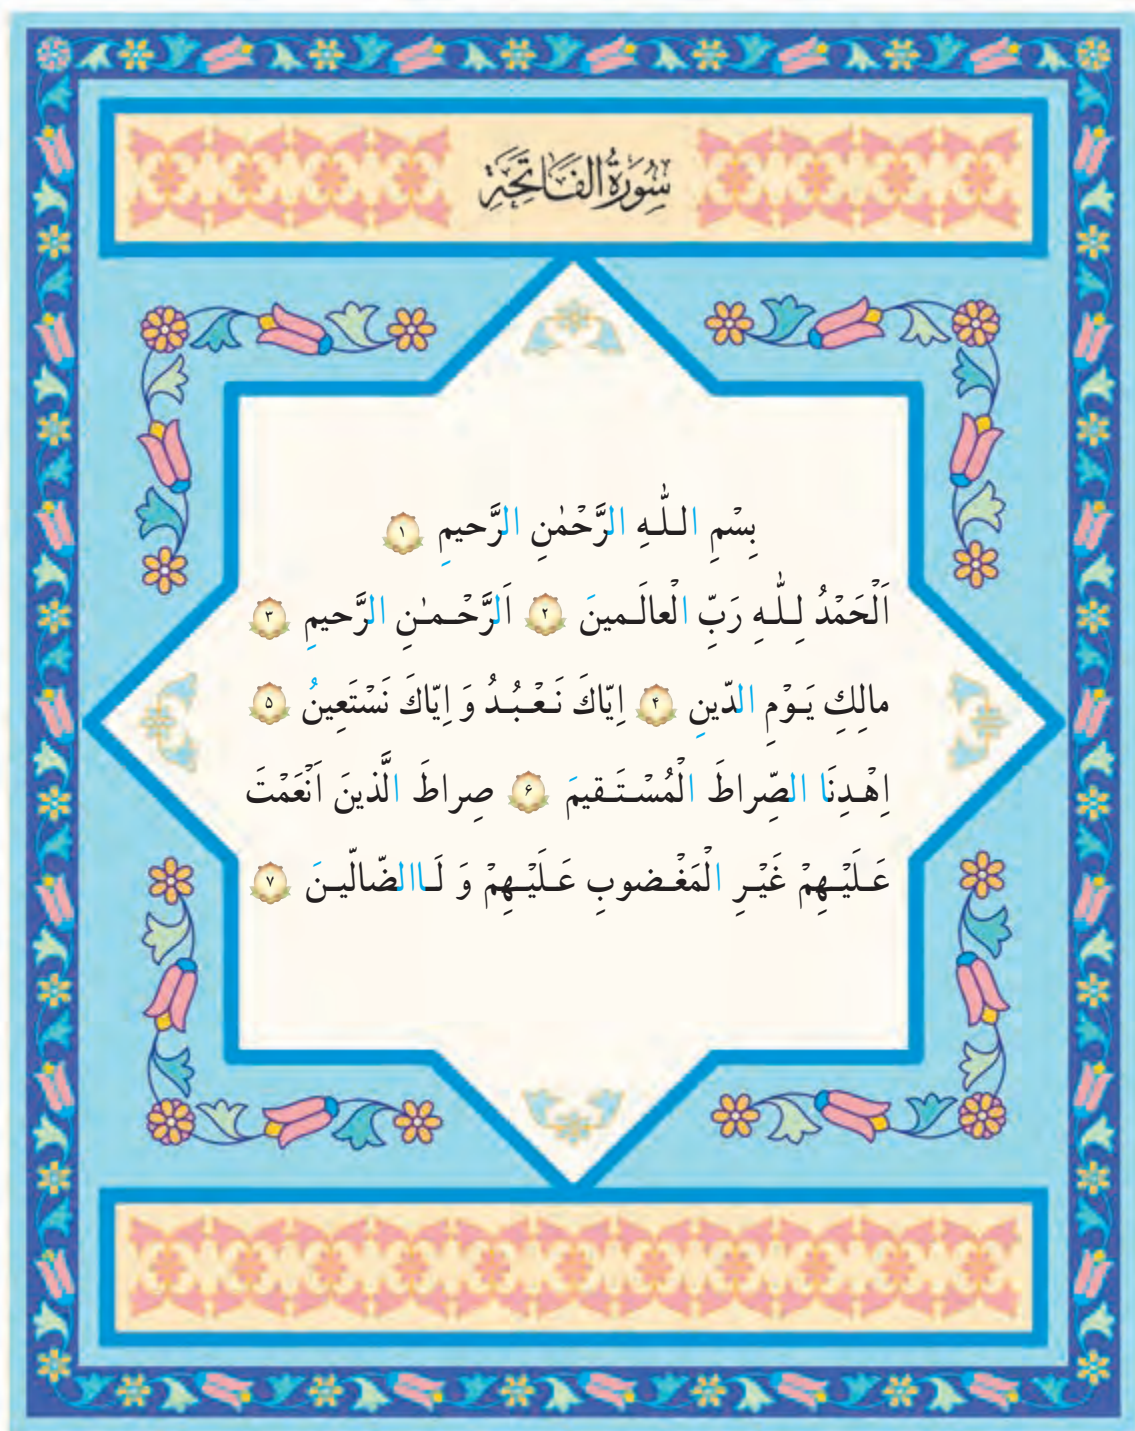 سُورَةُ الفَاتِحَةِ
بِسْمِ اللّٰهِ الرَّحْمٰنِ الرَّحيمِ ۱
اَلْحَمْدُ لِلّٰهِ رَبِّ الْعالَمينَ ۲ اَلرَّحْمٰنِ الرَّحيمِ ۳
مالِكِ يَوْمِ الدّينِ ۴ اِيّاكَ نَعْبُدُ وَ اِيّاكَ نَسْتَعِينُ ۵
اِهْدِنَا الصِّراطَ الْمُسْتَقيمَ ۶ صِراطَ الَّذينَ اَنْعَمْتَ
عَلَيْهِمْ غَيْرِ الْمَغْضوبِ عَلَيْهِمْ وَ لَاالضّالّينَ ۷